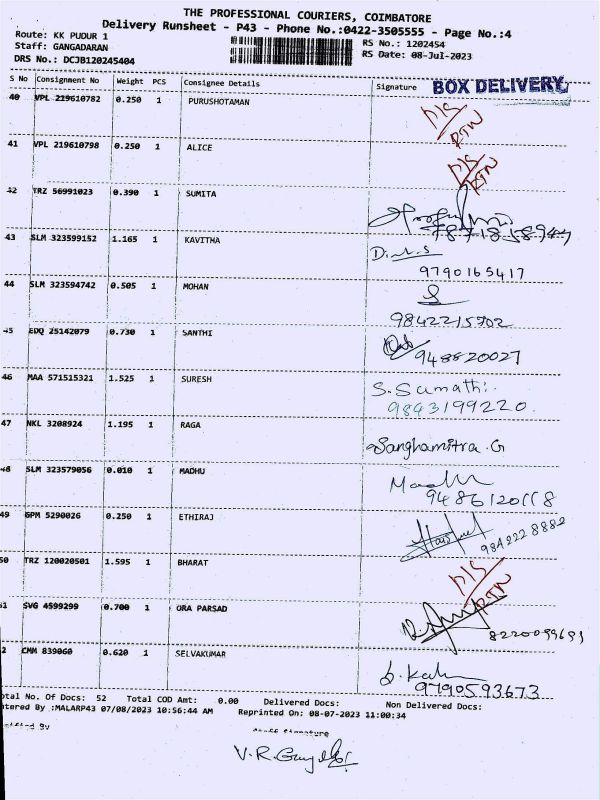 THE PROFESSIONAL COURIERS, COIMBATORE
Delivery Runsheet - P43 - Phone No.:0422-3505555 - Page No.:4
Route: KK PUDUR 1
Staff: GANGADARAN
RS No.: 1202454
DRS No.: DCJB120245404
RS Date: 08-Jul-2023
S No Consignment No Weight PCS Consignee Details Signature BOX DELIVERY
40 VPL 219610782 0.250 1 PURUSHOTAMAN D/S RTN
41 VPL 219610798 0.250 1 ALICE D/S RTN
42 TRZ 56991023 0.390 1 SUMITA
43 SLM 323599152 1.165 1 KAVITHA
9790165417
44 SLM 323594742 0.505 1 MOHAN
9842215702
45 EDQ 25142079 0.730 1 SANTHI
948820027
46 MAA 571515321 1.525 1 SURESH S. Sumathi.
9843199220.
47 NKL 3208924 1.195 1 RAGA
Sanghamitra. G
48 SLM 323579056 0.010 1 MADHU
49 GPM 5290026 0.250 1 ETHIRAJ
9842228882
50 TRZ 120020501 1.595 1 BHARAT D/S RTN
51 SVG 4599299 0.700 1 ORA PARSAD
52 CMM 839060 0.620 1 SELVAKUMAR
9790593673
Total No. Of Docs: 52 Total COD Amt: 0.00 Delivered Docs: Non Delivered Docs:
Entered By :MALARP43 07/08/2023 10:56:44 AM Reprinted On: 08-07-2023 11:00:34
Staff Signature